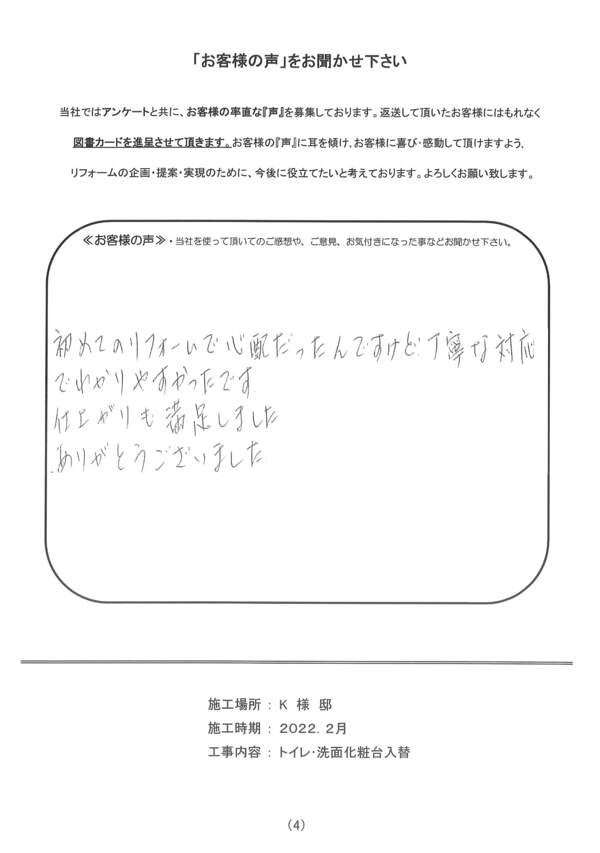 「お客様の声」をお聞かせ下さい
当社ではアンケートと共に、お客様の率直な『声』を募集しております。返送して頂いたお客様にはもれなく
図書カードを進呈させて頂きます。お客様の『声』に耳を傾け、お客様に喜び・感動して頂けますよう、
リフォームの企画・提案・実現のために、今後に役立てたいと考えております。よろしくお願い致します。
≪お客様の声≫・当社を使って頂いてのご感想や、ご意見、お気付きになった事などお聞かせ下さい。
初めてのリフォームで心配だったんですけど、丁寧な対応
でわかりやすかったです
仕上がりも満足しました
ありがとうございました
施工場所 : K 様 邸
施工時期 : 2022. 2月
工事内容 : トイレ・洗面化粧台入替
(4)